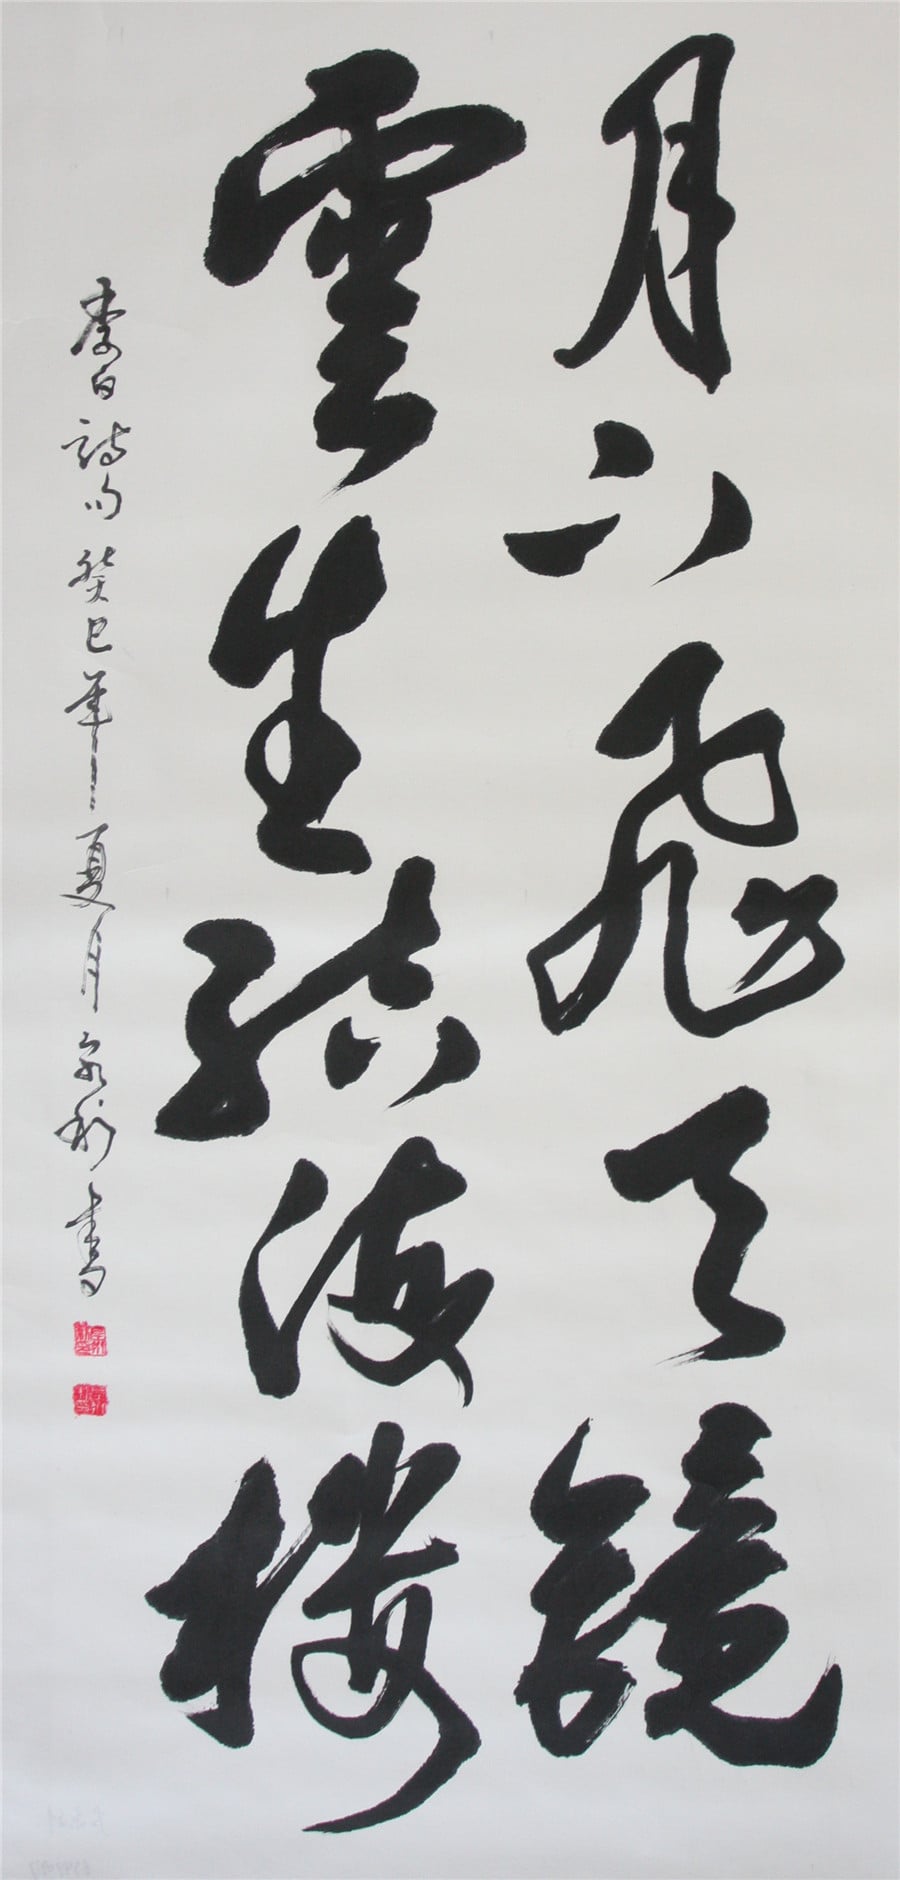 月下飛天鏡
雲生結海樓
李白詩句 癸巳年夏月 永利書